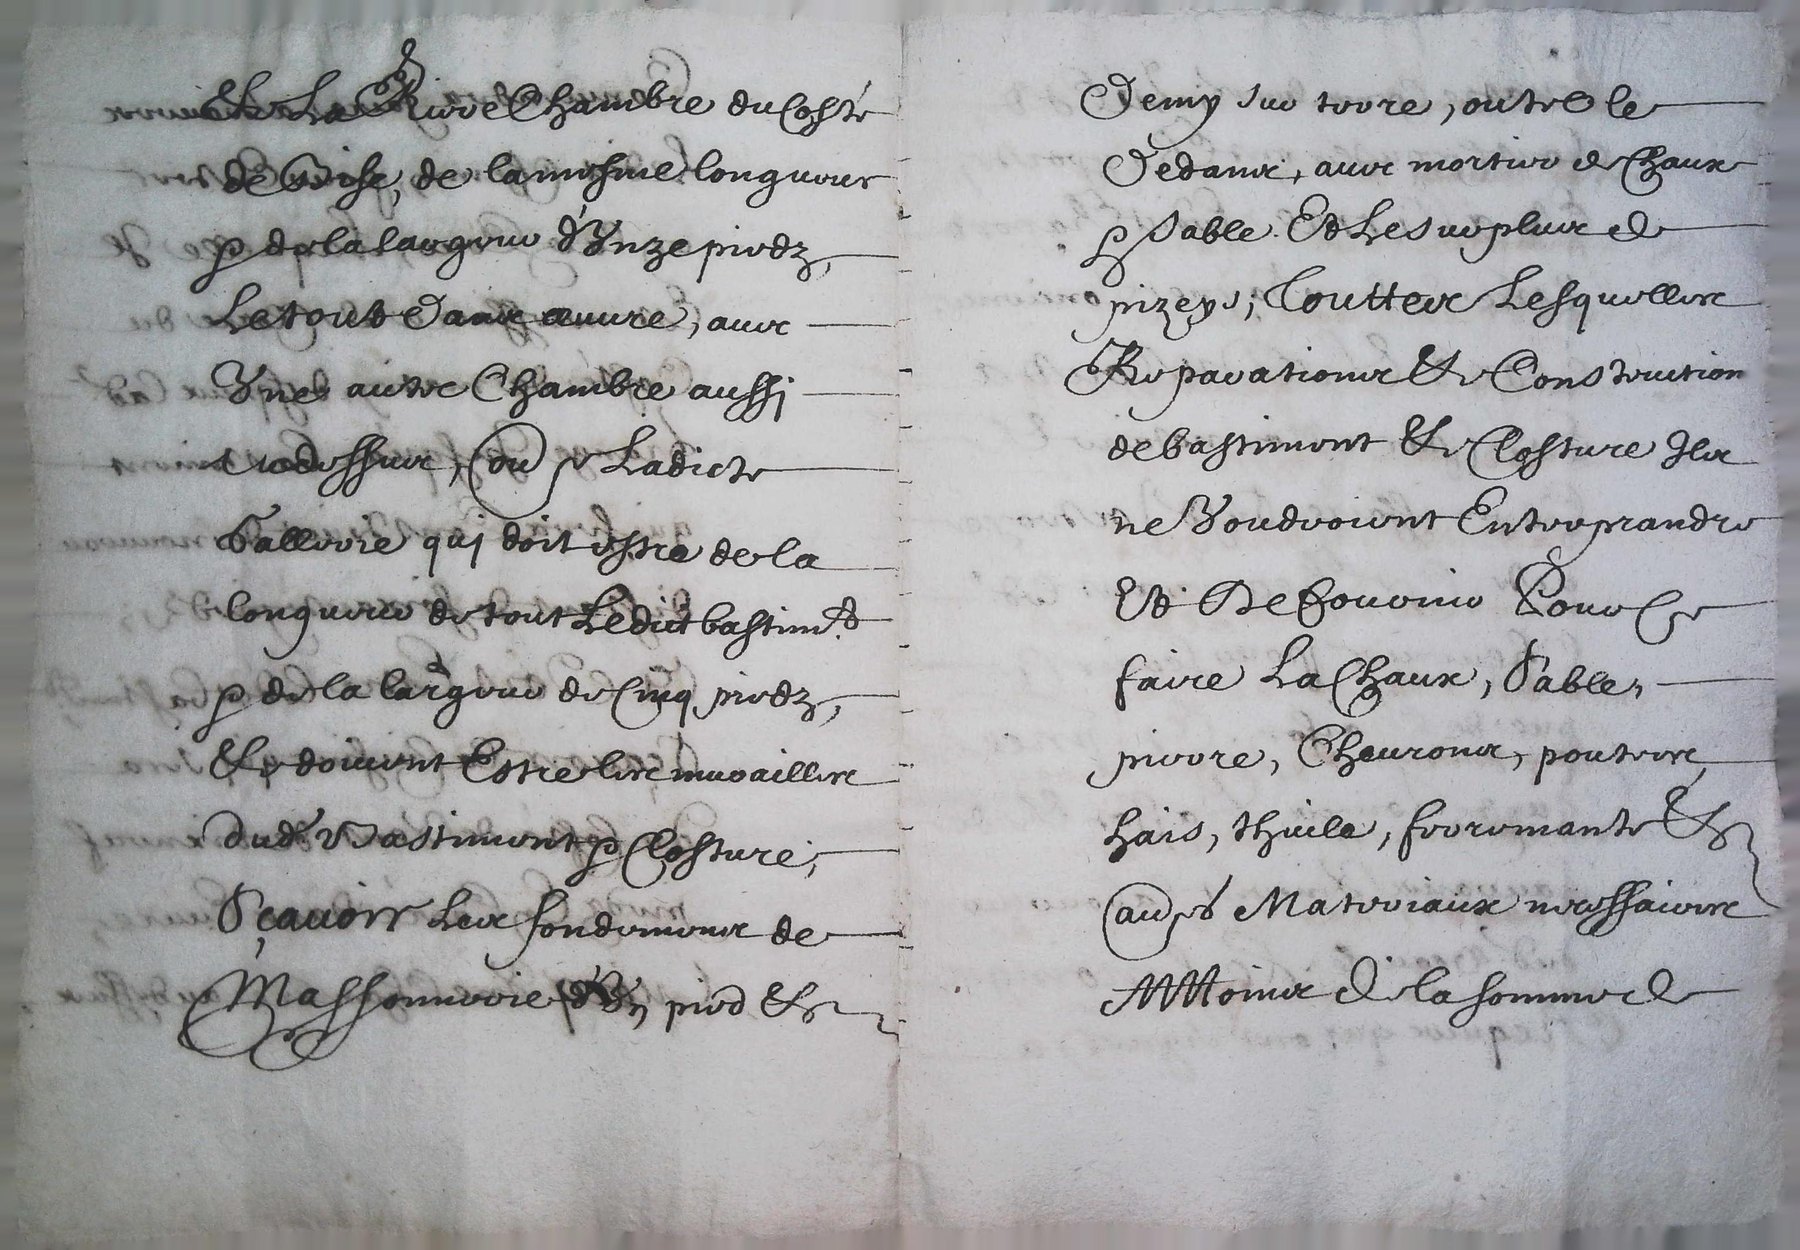 Et La Tierce Chambre du Costé
de Bise, de la mesme longueur
& de la largeur d'Unze piedz,
Le tout dans œuvre, avec
Une autre Chambre aussi
au dessus, Ladicte
Gallerie qui doit estre de la
longueur de tout Ledict bastimt
& de la largeur de Cinq piedz,
Et doivent Estre les murailles
dudt Bastiment & Closture,
Sçavoir Les fondemens de
Massonnerie d'Un pied Et
Demy sur terre, outre le
Dedans, avec mortier de Chaux
& Sable Et Le surplus de
pizeys, Touttes Lesquelles
Reparations Et Construction
de bastiment Et Closture Ils
ne Voudroient Entreprandre
Et De fournir Pour Ce
faire La Chaux, Sable,
pierre, Chevrons, poutres,
hais, thuile, ferremante Et
aues Materiaux necessaires
A Moins de la somme de